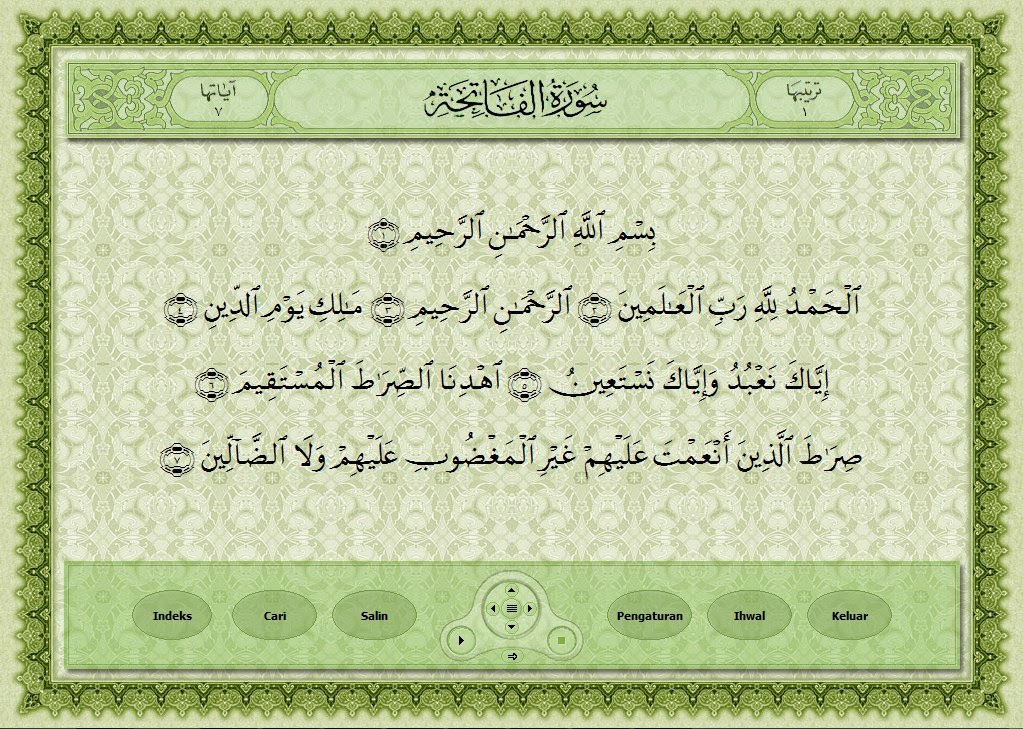 ترتيبها
١
سُورَةُ الفَاتِحَةِ
آياتها
٧
بِسْمِ ٱللَّهِ ٱلرَّحْمَـٰنِ ٱلرَّحِيمِ ١
ٱلْحَمْدُ لِلَّهِ رَبِّ ٱلْعَـٰلَمِينَ ٢ ٱلرَّحْمَـٰنِ ٱلرَّحِيمِ ٣ مَـٰلِكِ يَوْمِ ٱلدِّينِ ٤
إِيَّاكَ نَعْبُدُ وَإِيَّاكَ نَسْتَعِينُ ٥ ٱهْدِنَا ٱلصِّرَٰطَ ٱلْمُسْتَقِيمَ ٦
صِرَٰطَ ٱلَّذِينَ أَنْعَمْتَ عَلَيْهِمْ غَيْرِ ٱلْمَغْضُوبِ عَلَيْهِمْ وَلَا ٱلضَّآلِّينَ ٧
Indeks Cari Salin Pengaturan Ihwal Keluar